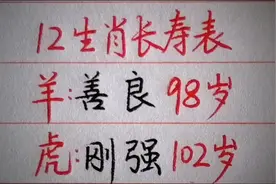 12生肖长寿表
羊:善良98岁
虎:刚强102岁